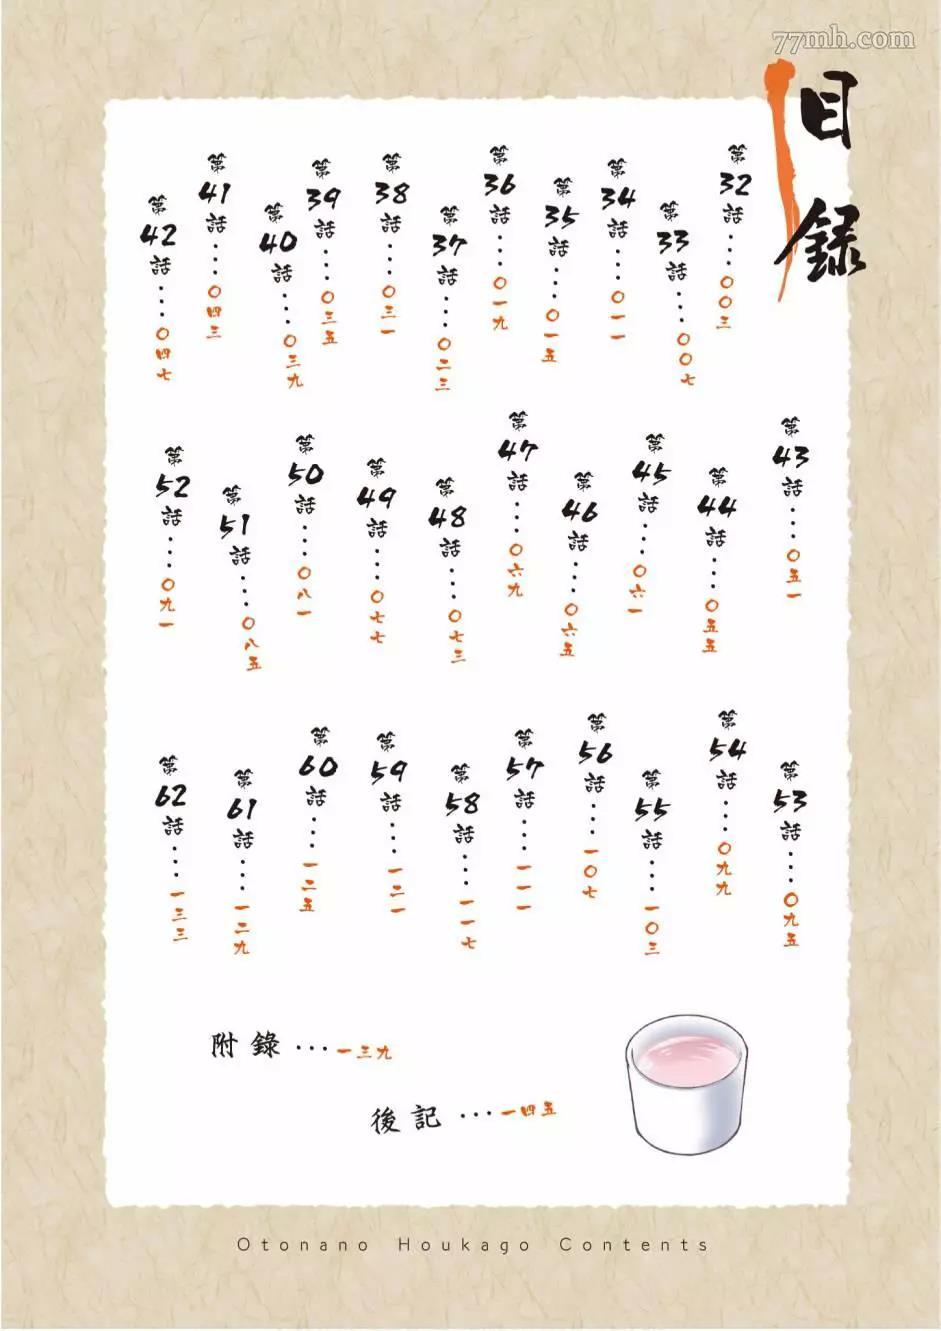 77mh.com
目錄
第32話‥‥〇〇三
第33話‥‥〇〇七
第34話‥‥〇一一
第35話‥‥〇一五
第36話‥‥〇一九
第37話‥‥〇二三
第38話‥‥〇三一
第39話‥‥〇三五
第40話‥‥〇三九
第41話‥‥〇四三
第42話‥‥〇四七
第43話‥‥〇五一
第44話‥‥〇五五
第45話‥‥〇六一
第46話‥‥〇六五
第47話‥‥〇六九
第48話‥‥〇七三
第49話‥‥〇七七
第50話‥‥〇八一
第51話‥‥〇八五
第52話‥‥〇九一
第53話‥‥〇九五
第54話‥‥〇九九
第55話‥‥一〇三
第56話‥‥一〇七
第57話‥‥一一一
第58話‥‥一一七
第59話‥‥一二一
第60話‥‥一二五
第61話‥‥一二九
第62話‥‥一三三
附錄…一三九
後記…一四五
Otonano Houkago Contents